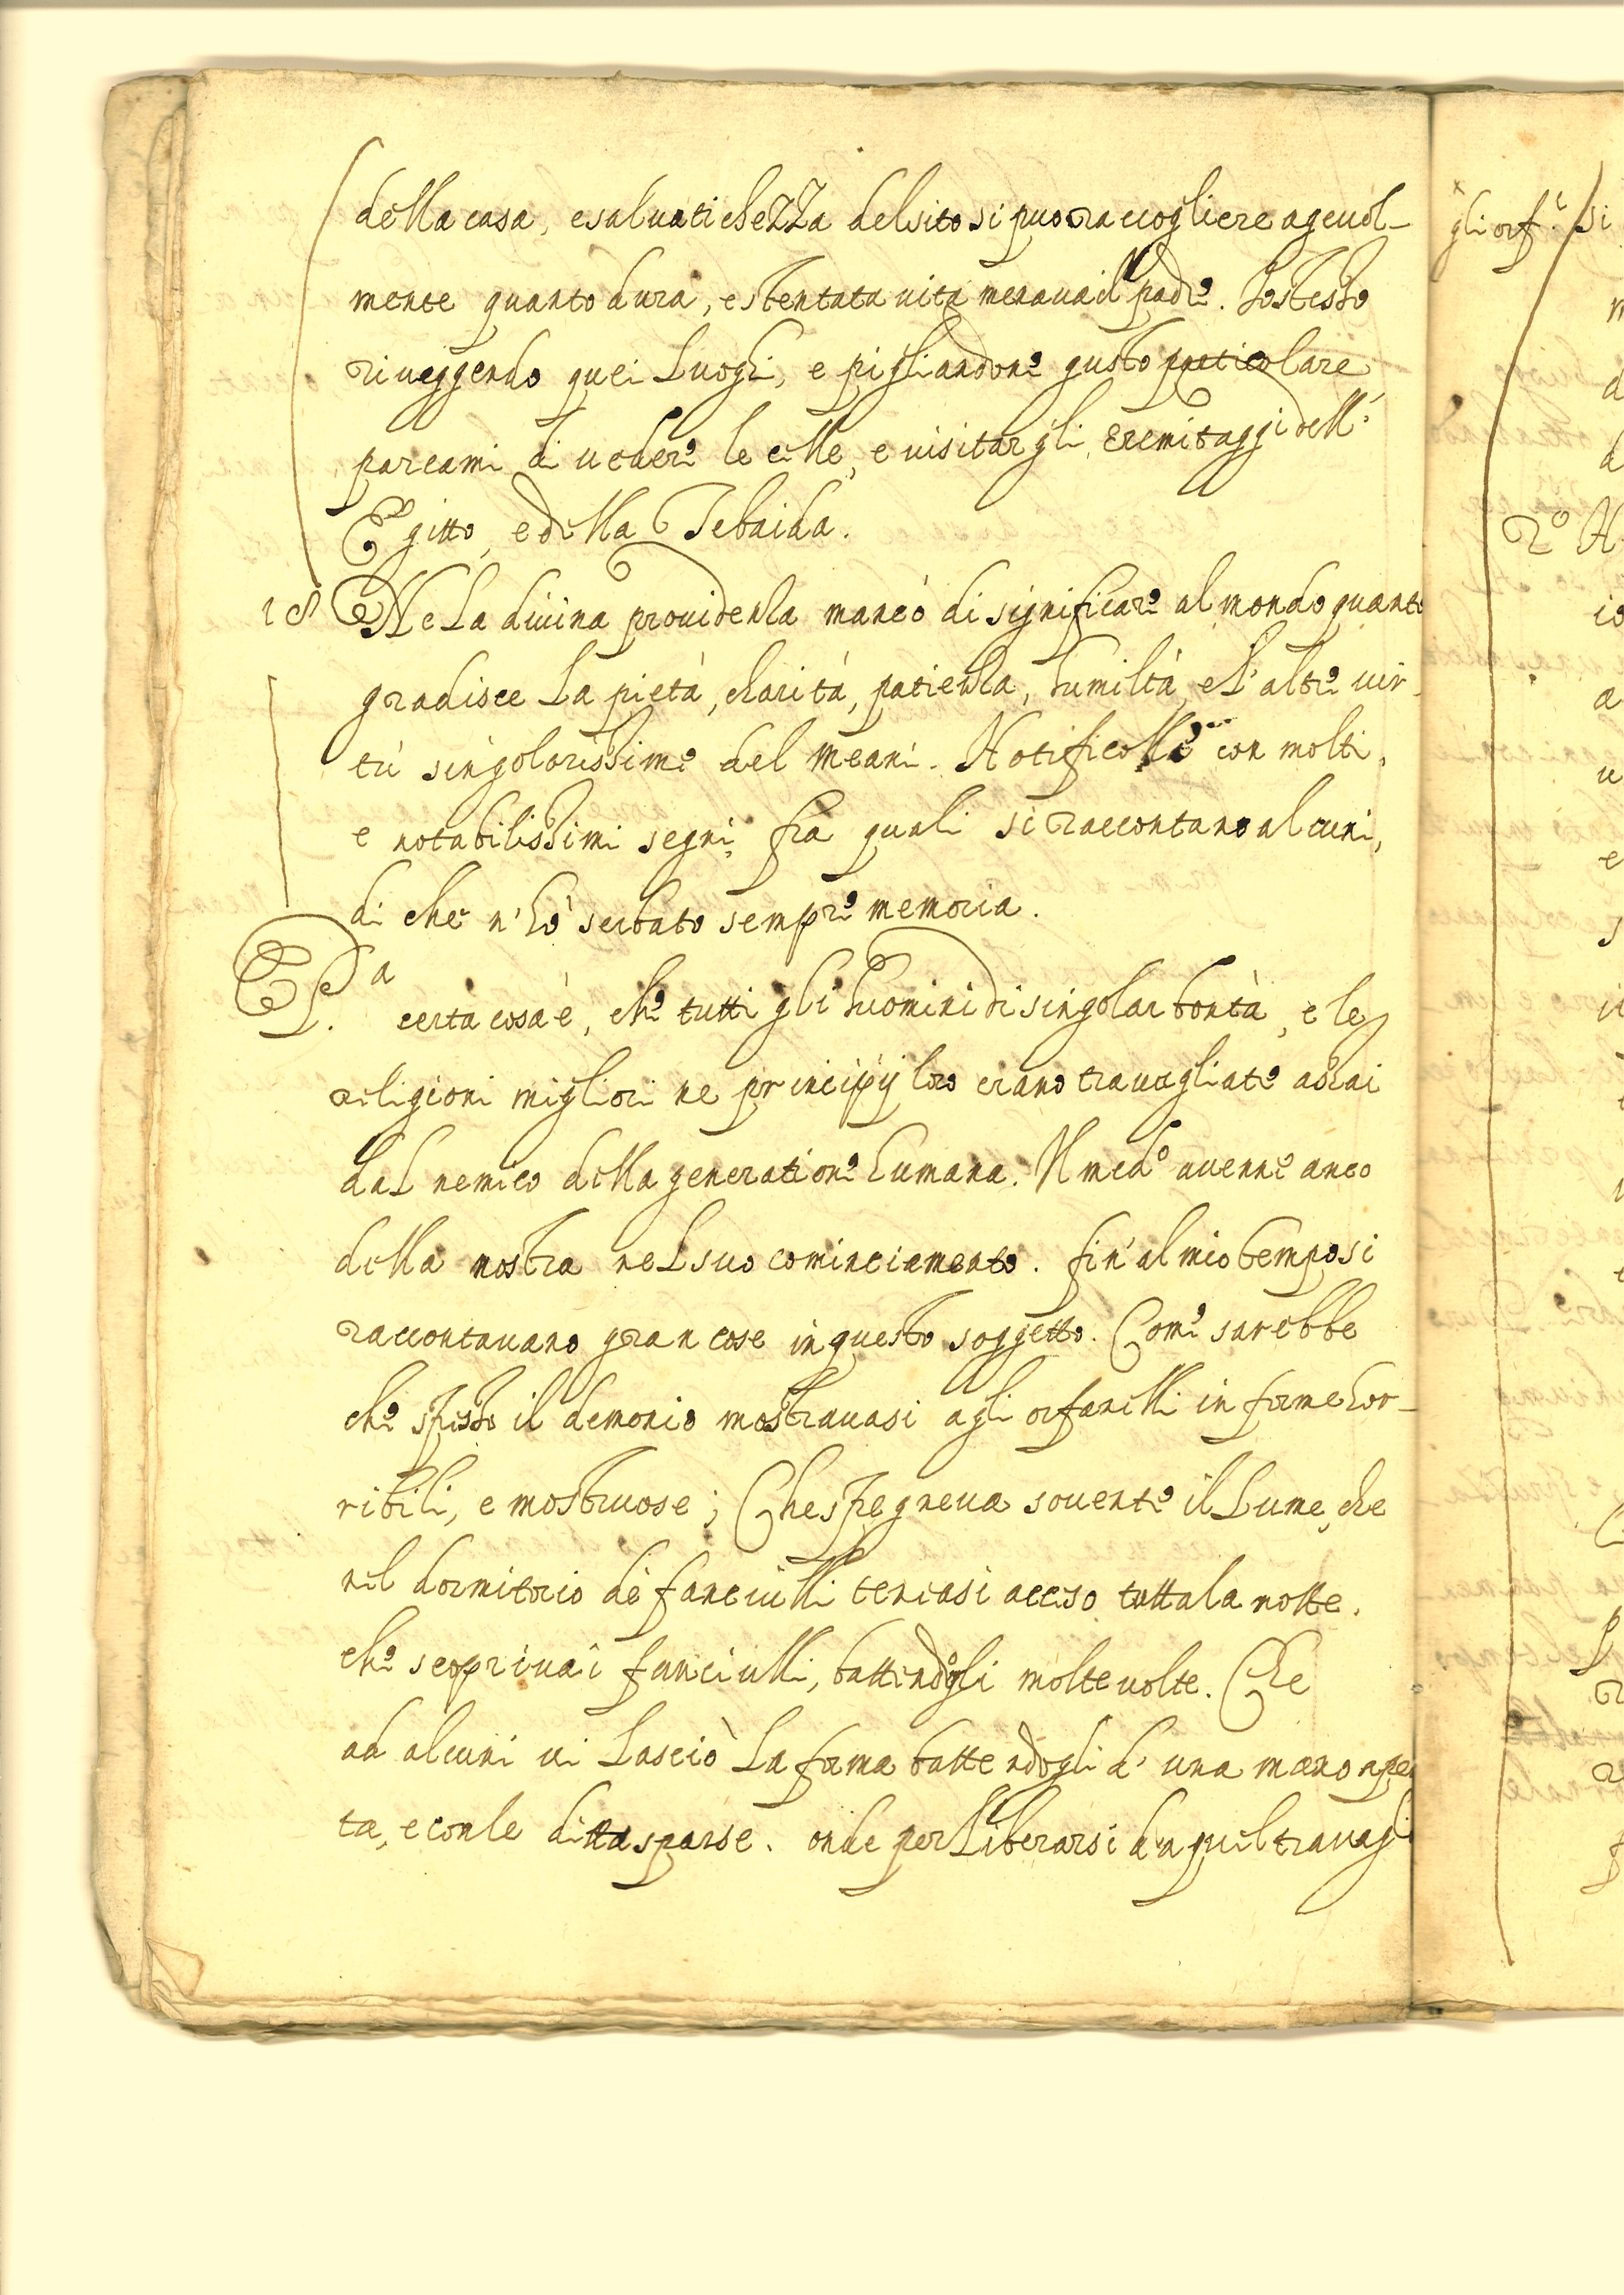 della casa, e saluatichezza del sito si puo raccogliere ageuol-
mente quanto dura, e stentata uita menaua il padre. Io stesso
riueggendo quei Luoghi, e pigliandone gusto particolare
pareami di uedere le celle, e uisitar gli eremitaggi dell'
Egitto, e della Tebaida.
18 Ne La diuina prouidenza mancò di significare al mondo quanto
gradisce La pietà, charità, patienza, humiltà, e L'altre uir-
tù singolarissime del Meani. Notificolle con molti,
e notabilissimi segni, fra quali si raccontano alcuni,
di che n'hò serbato sempre memoria.
P.a certa cosa è, che tutti gli huomini di singolar bontà, e le
religioni migliori ne principij loro erano trauagliate assai
daL nemico della generatione humana. Il med.o auenne anco
della nostra neL suo cominciamento. fin'al mio tempo si
raccontauano gran cose in questo soggetto. Come sarebbe
che spesso il demonio mostrauasi agli orfanelli in forme hor-
ribili, e mostruose; Che spegneua souente il Lume, che
nel dormitorio de fanciulli teneasi acceso tutta la notte.
che scopriua i fanciulli, battendogli molte uolte. Che
ad alcuni ui Lasciò La forma battendogli d'una mano aper
ta, e con le ditta sparse. onde per Liberarsi da quel trauagli
gli orf.i si